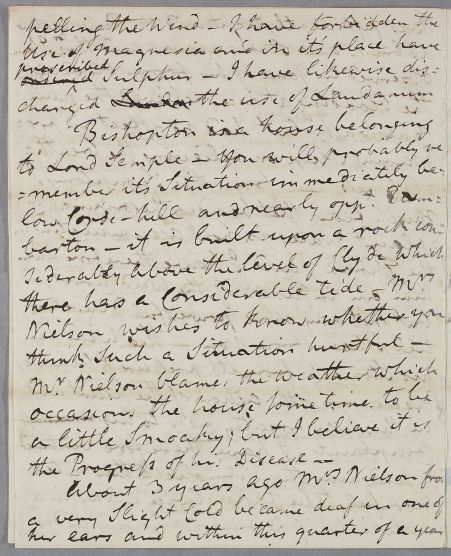 pelling the Wind - I have forbidden the
Use of Magnesia and in it's place have
prescribed
Sulphur - I have likewise dis-
charged the use of Laudanum
Bishopton is a house belonging
to Lord Semple - You will probably re
=member it's Situation immediately be-
low Cords-hill and nearly opp. Dum-
barton - it is built upon a rock con-
siderably above the level of Clyde which
there has a Considerable tide - Mrs
Nielson wishes to know whether you
think such a Situation hurtful -
Mr Nielson blames the weather which
occasions the house sometime to be
a little Smoaky; but I believe it is
the Progress of his Disease -
About 3 years ago Mrs Nielson from
a very Slight Cold became deaf in one of
her ears and within this quarter of a year